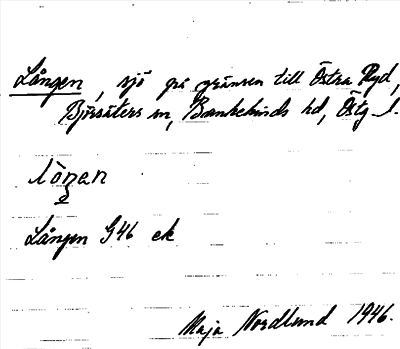 Lången, sjö på gränsen till Östra Ryd,
Björsäters sn, Bankekinds hd, Östg l.
Lången G46 ek
Maja Nordlund 1946.